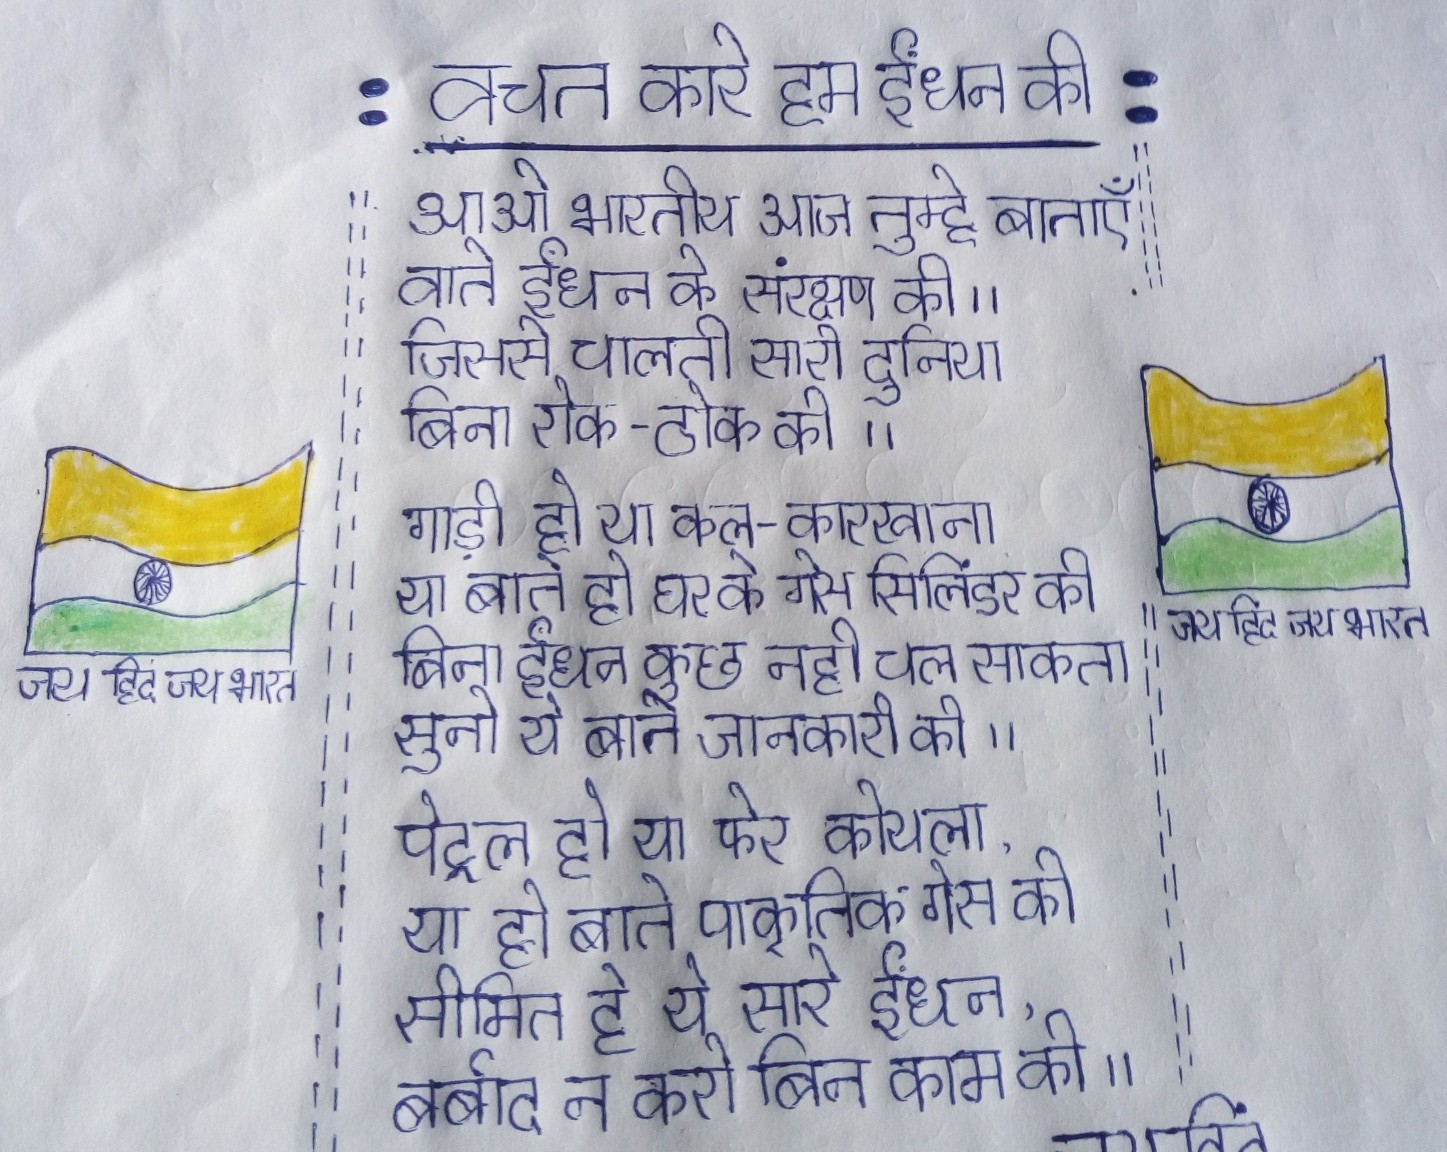 : वचत कारे हम ईंधन की :
आओ भारतीय आज तुम्हे बाताएँ
वाते ईंधन के संरक्षण की ॥
जिससे चालती सारी दुनिया
बिना रोक-टोक की ॥
गाड़ी हो या कल-कारखाना
या बाते हो घर के गेस सिलिंडर की
बिना ईंधन कुछ नही चल साकता
सुनो ये बाते जानकारी की ॥
पेट्रल हो या फेर कोयला,
या हो बाते पाकृतिक गेस की
सीमित हे ये सारे ईंधन,
बर्बाद न करो बिन काम की ॥
जय हिंद जय भारत
जय हिंद जय भारत